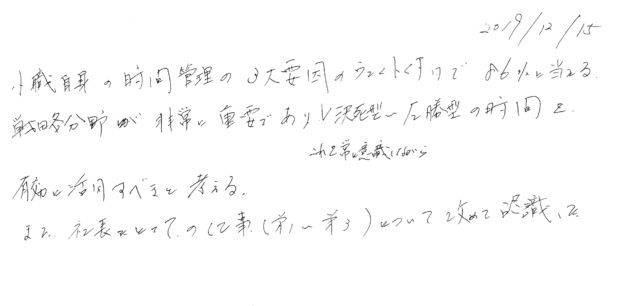 2019/12/15
小職自身の時間管理の3大要因のウェイトづけで86%に当る
戦略各分野が非常に重要であり、決死型〜左勝型の時間を
これを常に意識しながら
有効に活用すべきと考える。
また社長としての仕事(第1〜第3)について改めて認識した